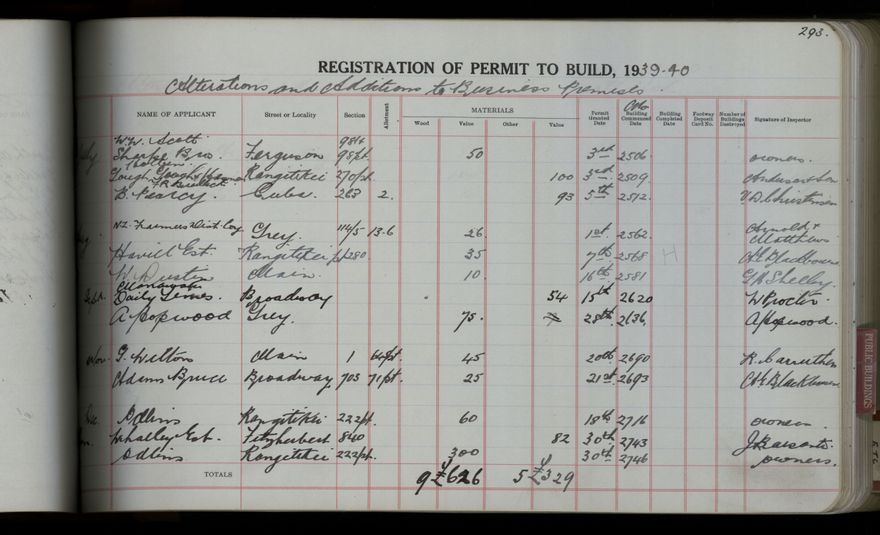 293.
REGISTRATION OF PERMIT TO BUILD, 1939-40
Alterations and Additions to Business Premises.
NAME OF APPLICANT Street or Locality Section Allotment MATERIALS Permit Granted Date Building Commenced Date Building Completed Date Footway Deposit Card No. Number of Buildings Destroyed Signature of Inspector
Wood Value Other Value
W.W. Scott 981/2
Bros. Ferguson 98pt. 50 3rd 2506. owners.
Rangitikei 270pt. 100 3rd 2509.
B. Pearcy. Cuba. 263 2. 93 5th 2512. V.D. Christmsen
N.Z. Farmers Dist. Coy Grey. 114/5 13.6 26 1st 2562. Arnold &
Matthews
Havill Est. Rangitikei pt 280 35 7th 2568 H
W. Dustin Main. 10. 16th 2581 G.H. Shelley.
Manawatu
Sept. Daily Times. Broadway 54 15th 2620 W Procter.
A Hopwood Grey. 75. 28th. 2636. A Hopwood.
Nov. G. Wilton Main 1 64pt. 45 20th 2690 R. Carruthers
Adams Bruce Broadway. 705 71pt. 25 21st. 2693 Blackburn
Adlins Rangitikei 222pt. 60 18th 2716 owners
Whalley Est. Fitzherbert 840 82 30th 2743
Adlins Rangitikei 222pt. 300 30th 2746 owners.
TOTALS 9 £626 5 £329
PUBLIC BUILDINGS